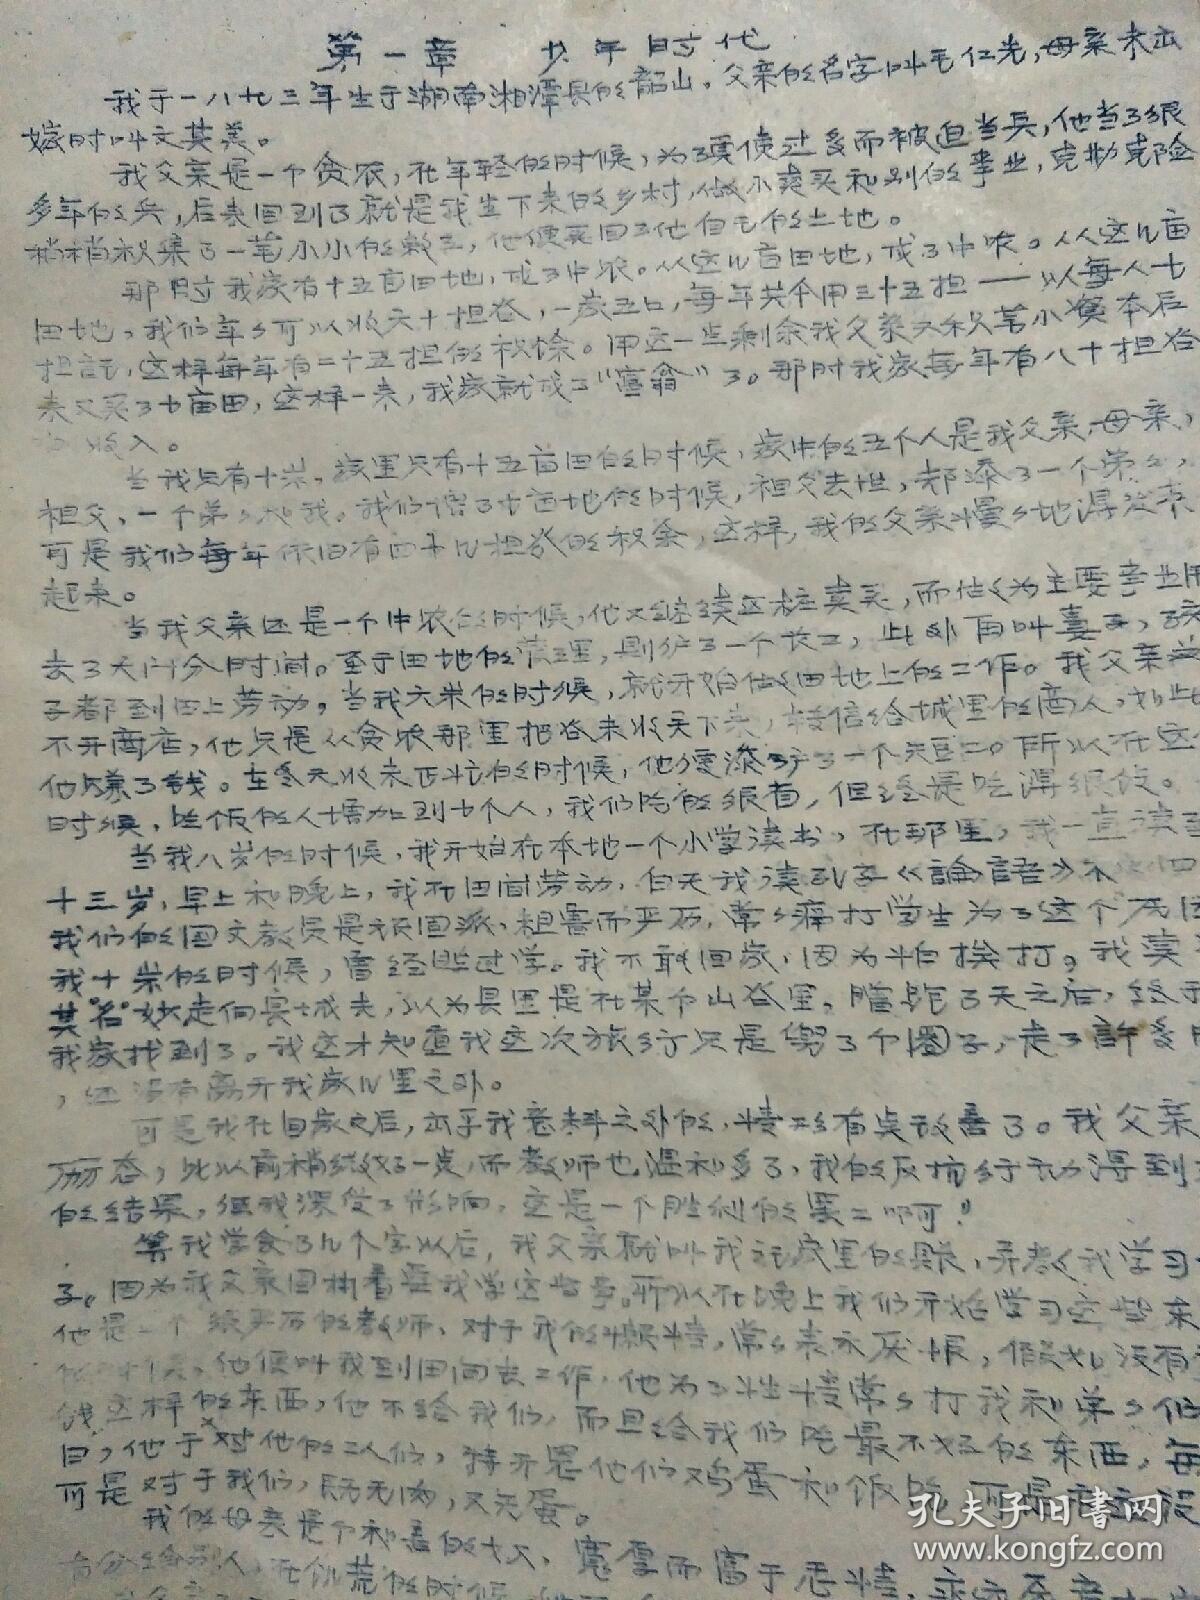 第一章 少年时代
我于一八九三年生于湖南湘潭县的韶山。父亲的名字叫毛仁光,母亲未出
嫁时叫文其美。
我父亲是一个贫农,在年轻的时候,为了债使过多而被迫当兵,他当了很
多年的兵,后来回到了就是我生下来的乡村,做小卖买和别的事业,克勤克险
稍稍积集了一笔小小的款子,他便买回了他自己的土地。
那时我家有十五亩田地,成了中农。从这几亩田地,成了中农。从这几亩
田地,我们年々可以收六十担谷,一家五口,每年共食用三十五担——以每人七
担計,这样每年有二十五担的积馀。用这一些剩余我父亲又积蓄小资本后
来又买了七亩田,这样一来,我家就成了“富翁”了。那时我家每年有八十担谷
收入。
当我只有十岁,家里只有十五亩田的时候,家中的五个人是我父亲,母亲,
祖父、一个弟々和我。我们增了七亩地的时候,祖父去世,却添了一个弟々,
可是我们每年依旧有四十几担谷的积余,这样,我的父亲慢々地得发表
起来。
当我父亲还是一个中农的时候,他又继续卖买,而做为主要事业用
去了大门分时间。至于田地的管理,则雇了一个长工,此外再叫妻子,孩
子都到田上劳动,当我六岁的时候,就开始做田地上的工作。我父亲并
不开商店,他只是从贫农那里把谷米收买下来,转售给城里的商人,如此
他赚了钱。在冬天收米正忙的时候,他便添了一个短工。所以在这个
时候,吃饭的人增加到七个人,我们吃的很省,但终是吃得很饱。
当我八岁的时候,我开始在本地一个小学读书,在那里,我一直读到
十三岁,早上和晚上,我在田间劳动,白天我读孔子《論語》和四
我们的国文教员是顽固派,粗暴而严厉,常々痛打学生为了这个原因
我十岁的时候,曾经逃过学。我不敢回家,因为怕挨打。我莫
其“名”妙走向县城去,以为县里是在某个山谷里。瞎跑了三天之后,终于
我家找到了。我这才知道我这次旅行只是兜了个圈子,走了許多
,还没有离开我家几里之外。
可是我在回家之后,出乎我意料之外的,情形有点改善了。我父亲
态,比以前稍微好一点,而教师也温和多了,我的反抗行动得到
的结果,给我深受了影响,这是一个胜利的罢工啊!
等我学会了几个字以后,我父亲就叫我记家里的账,并教我学习
子。因为我父亲固执着要我学这些事。所以在晚上我们开始学习这些东
他是一个很严厉的教师,对于我的懒惰,常々表示厌恨,假如没有
他便叫我到田间去工作,他为了性情常々打我和弟々们
钱这样的东西,他不给我们,而且给我们吃最不好的东西,每
日,他于对他的工人们,特开恩他们鸡蛋和饭吃,可是没
可是对于我们,既无肉,又无蛋。
我的母亲是个和善的女人、宽厚而富于感情,
分给别人,在饥荒的时候
孔夫子旧书网
www.kongfz.com